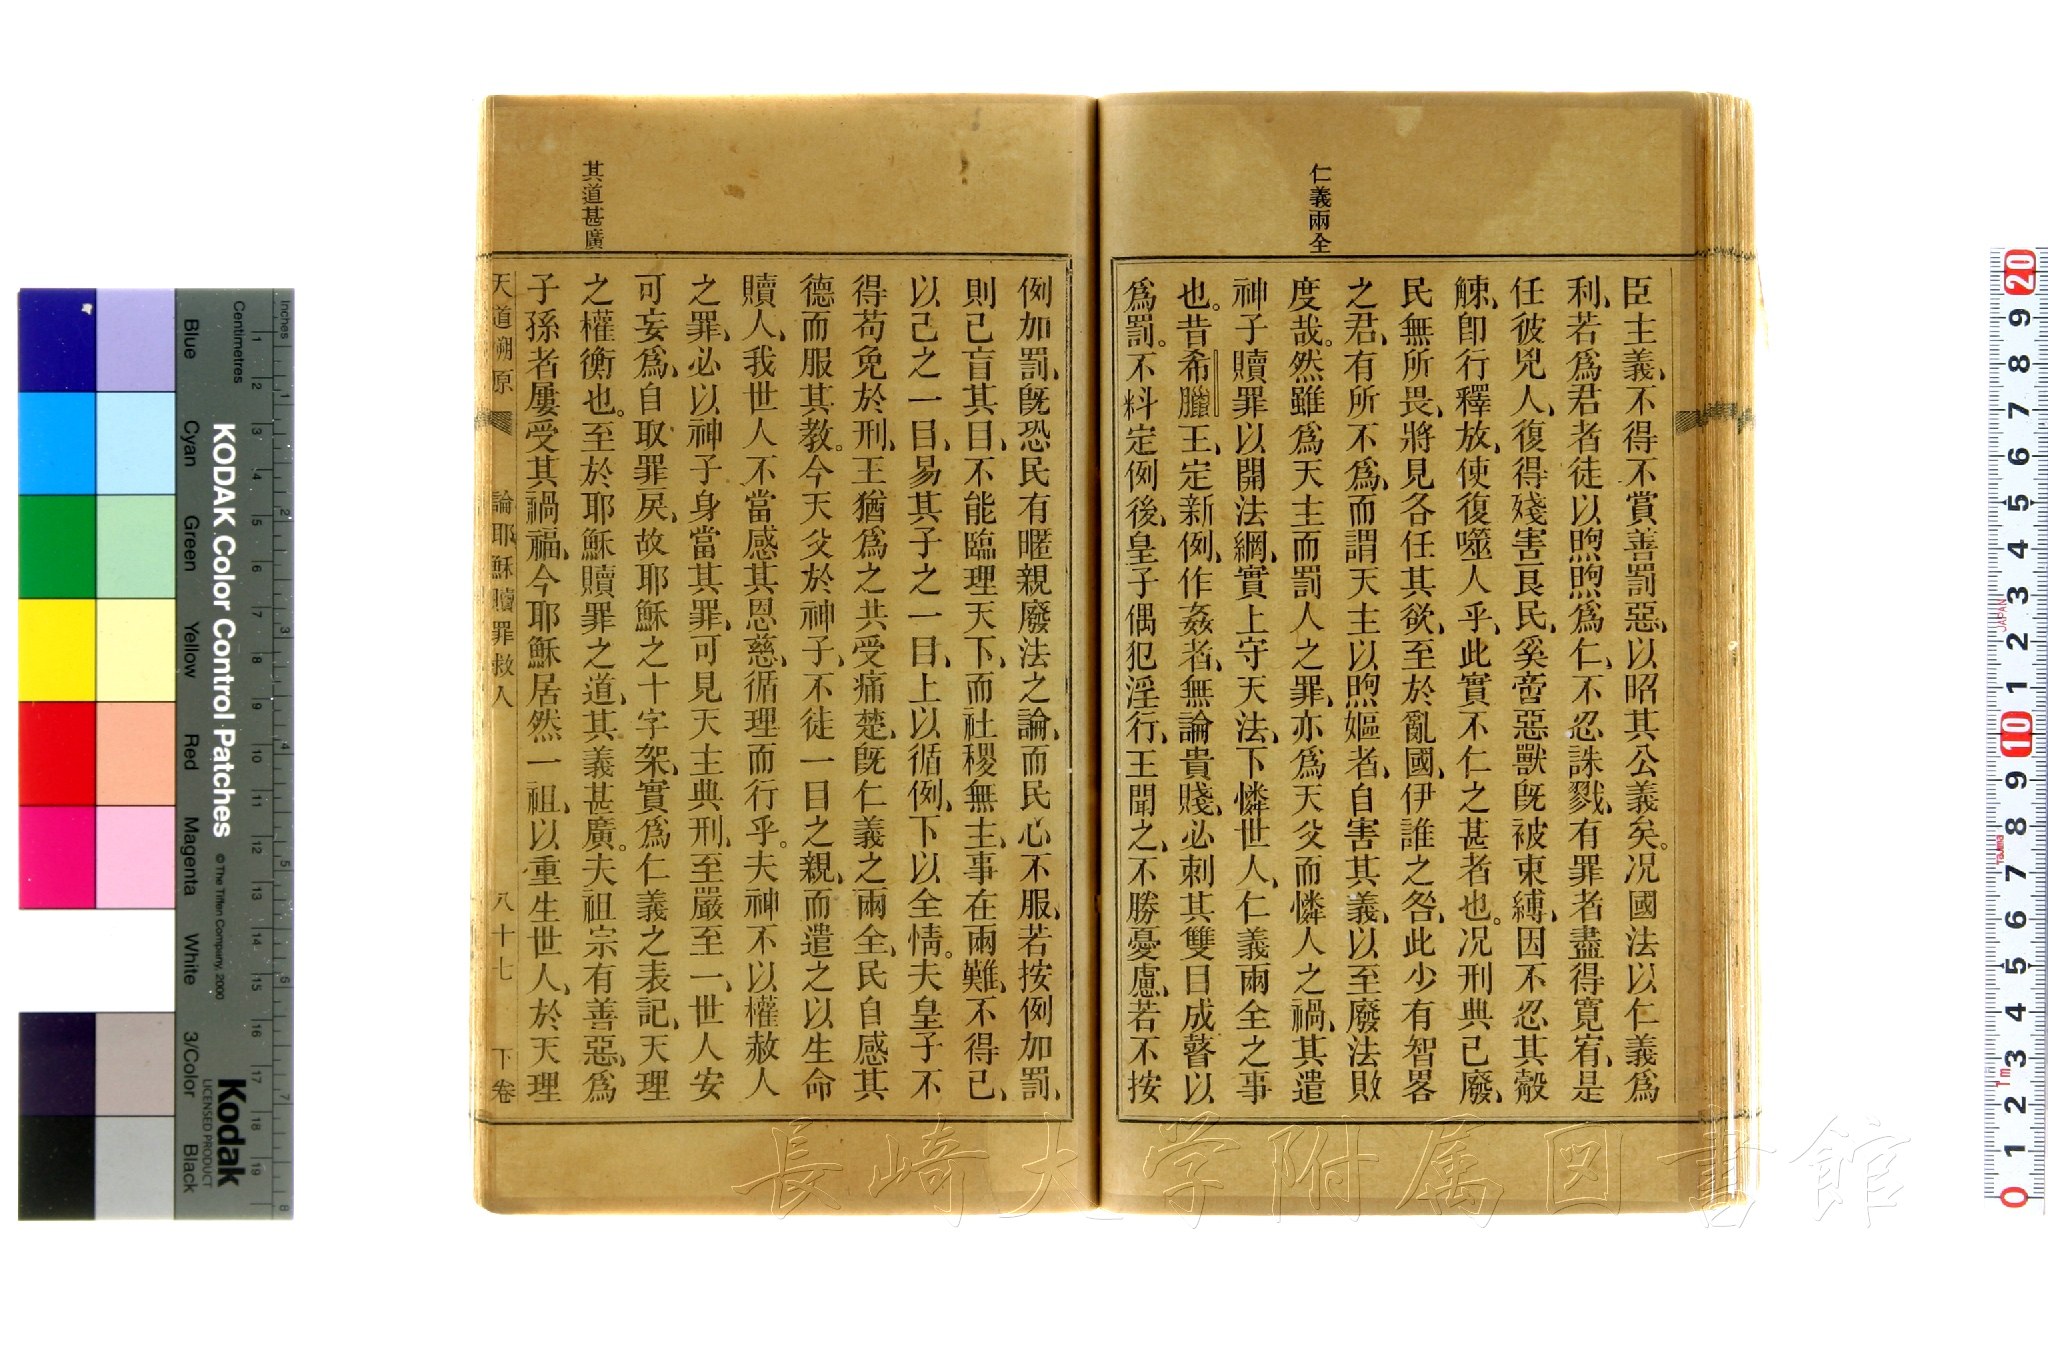 仁義兩全
臣主義、不得不賞善罰惡、以昭其公義矣。况國法以仁義爲
利、若爲君者徒以煦煦爲仁、不忍誅戮、有罪者盡得寬宥、是
任彼兇人、復得殘害良民、奚啻惡獸旣被束縛、因不忍其觳
觫、卽行釋放、使復噬人乎、此實不仁之甚者也。况刑典已廢、
民無所畏、將見各任其欲、至於亂國、伊誰之咎、此少有智畧
之君、有所不爲、而謂天主以煦嫗者、自害其義、以至廢法敗
度哉。然雖爲天主而罰人之罪、亦爲天父而憐人之禍、其遣
神子贖罪以開法網、實上守天法、下憐世人、仁義兩全之事
也。昔希臘王、定新例、作姦者、無論貴賤、必刺其雙目成瞽以
爲罰。不料定例後、皇子偶犯淫行、王聞之、不勝憂慮、若不按
例加罰、旣恐民有暱親廢法之論、而民心不服、若按例加罰、
則已盲其目、不能臨理天下、而社稷無主、事在兩難、不得已、
以己之一目、易其子之一目、上以循例、下以全情。夫皇子不
得苟免於刑、王猶爲之共受痛楚、旣仁義之兩全、民自感其
德而服其敎。今天父於神子、不徒一目之親、而遣之以生命
贖人、我世人不當感其恩慈、循理而行乎。夫神不以權赦人
之罪、必以神子身當其罪、可見天主典刑、至嚴至一、世人安
可妄爲、自取罪戾、故耶穌之十字架、實爲仁義之表記、天理
之權衡也。至於耶穌贖罪之道、其義甚廣。夫祖宗有善惡、爲
子孫者屢受其禍福、今耶穌居然一祖、以重生世人、於天理
其道甚廣
天道溯原 論耶穌贖罪救人 八十七 下卷
Inches
Centimetres
1 2 3 4 5 6 7 8
1 2 3 4 5 6 7 8 9 10 11 12 13 14 15 16 17 18 19
KODAK Color Control Patches
© The Tiffen Company, 2000
Kodak
LICENSED PRODUCT
Blue Cyan Green Yellow Red Magenta White 3/Color Black
20 9 8 7 6 5 4 3 2 1 10 9 8 7 6 5 4 3 2 1 0
JAPAN
長崎大学附属図書館